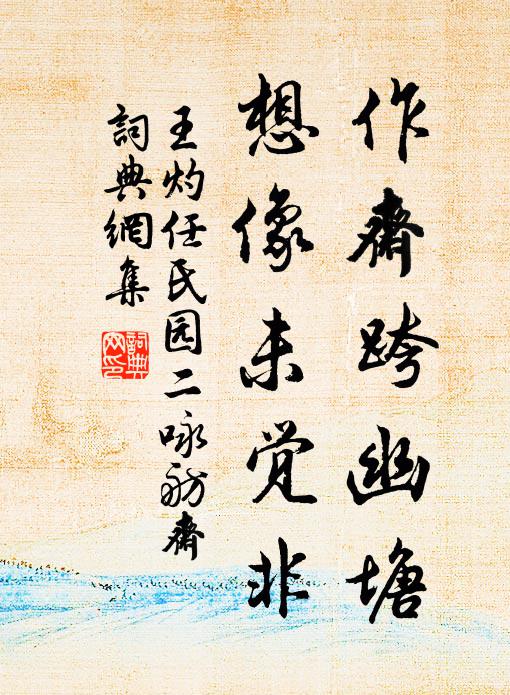 作齋跨幽塘
想像未覚非
王灼任氏园二咏舫齋
詞典網集
詞典
网印